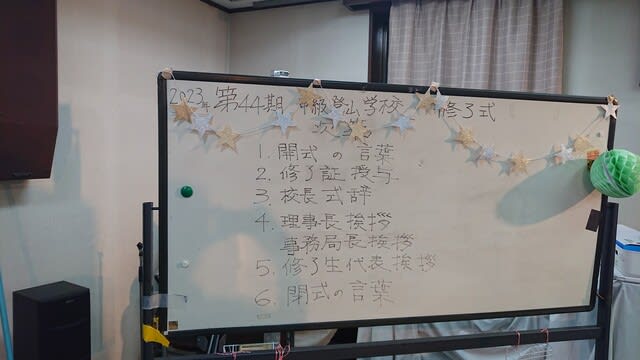 2023年 第44期 中級登山学校 修了式
次第
1. 開式の言葉
2. 修了証授与
3. 校長式辞
4. 理事長挨拶
事務局長挨拶
5. 修了生代表挨拶
6. 閉式の言葉